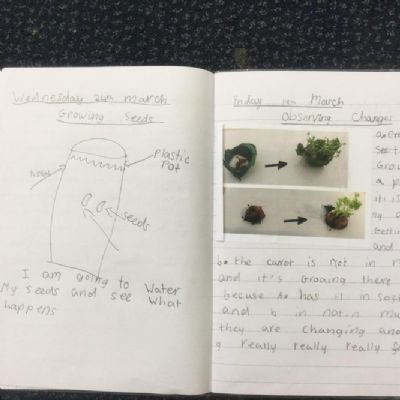 Wednesday 24th march
Growing Seeds
Plastic
Pot
seeds
I am going to Water
My seeds and see What
happens
Friday March
Observing Changes
Grow
a p
it is
my
Gettin
and
b. the carrot is not in m
and it's Growing there
becuse has it in soft
and b in not.n mu
they are changing and
really really really